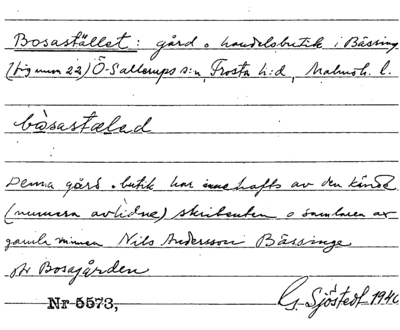 Bosastället: gård o handelsbutik i Bässinge
(fig num 22) Ö-Sallerups s:n, Frosta h:d, Malmöh. l.
bòsastæled
Denna gård o butik har innehafts av den kände
(numera avlidne) skribenten o samlaren av
gamla minnen Nils Andersson Bässinge
Bosagården
Nr 5573, G. Sjöstedt 1940